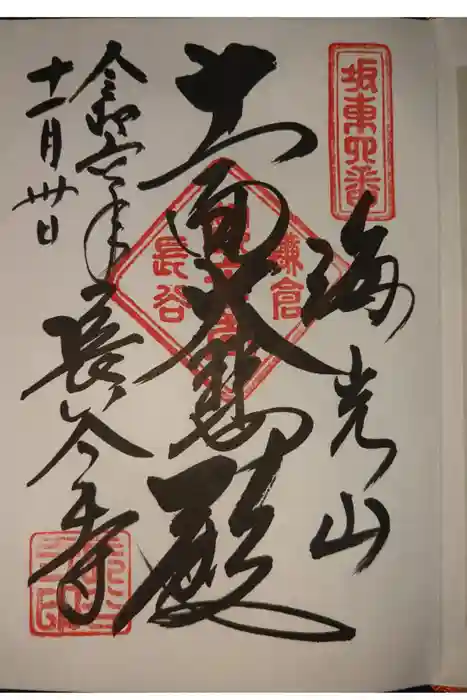 坂東四番
海光山
十一面大悲殿
鎌倉
長谷
令和六年
十一月卅日
長谷寺